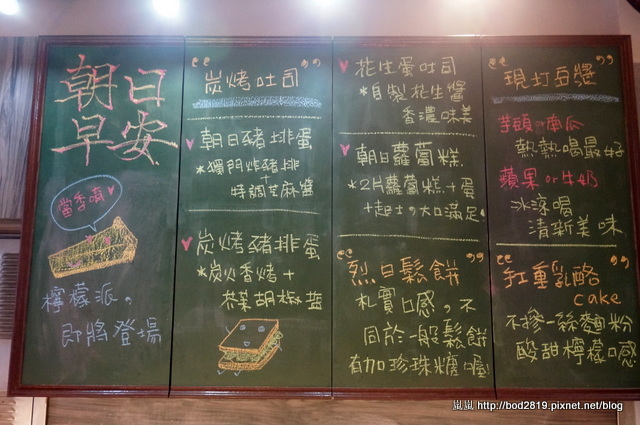 朝日
早安
當季喲
檸檬派,
即將登場
"炭烤吐司"
朝日豬排蛋
*獨門炸豬排
+
特調芝麻醬
炭烤豬排蛋
*炭火香烤+
茶葉胡椒鹽
花生蛋吐司
*自製花生醬
香濃味美
朝日蘿蔔糕
*2片蘿蔔糕+蛋
+起士の大口滿足
"烈日鬆餅"
札實口感,不
同於一般鬆餅
有加珍珠糖喔!
"現打豆漿"
芋頭or南瓜
熱熱喝最好
蘋果or牛奶
冰涼喝
清新美味
"重乳酪
cake"
不摻一絲麵粉
酸甜檸檬口感
嵐嵐 http://bod2819.pixnet.net/blog